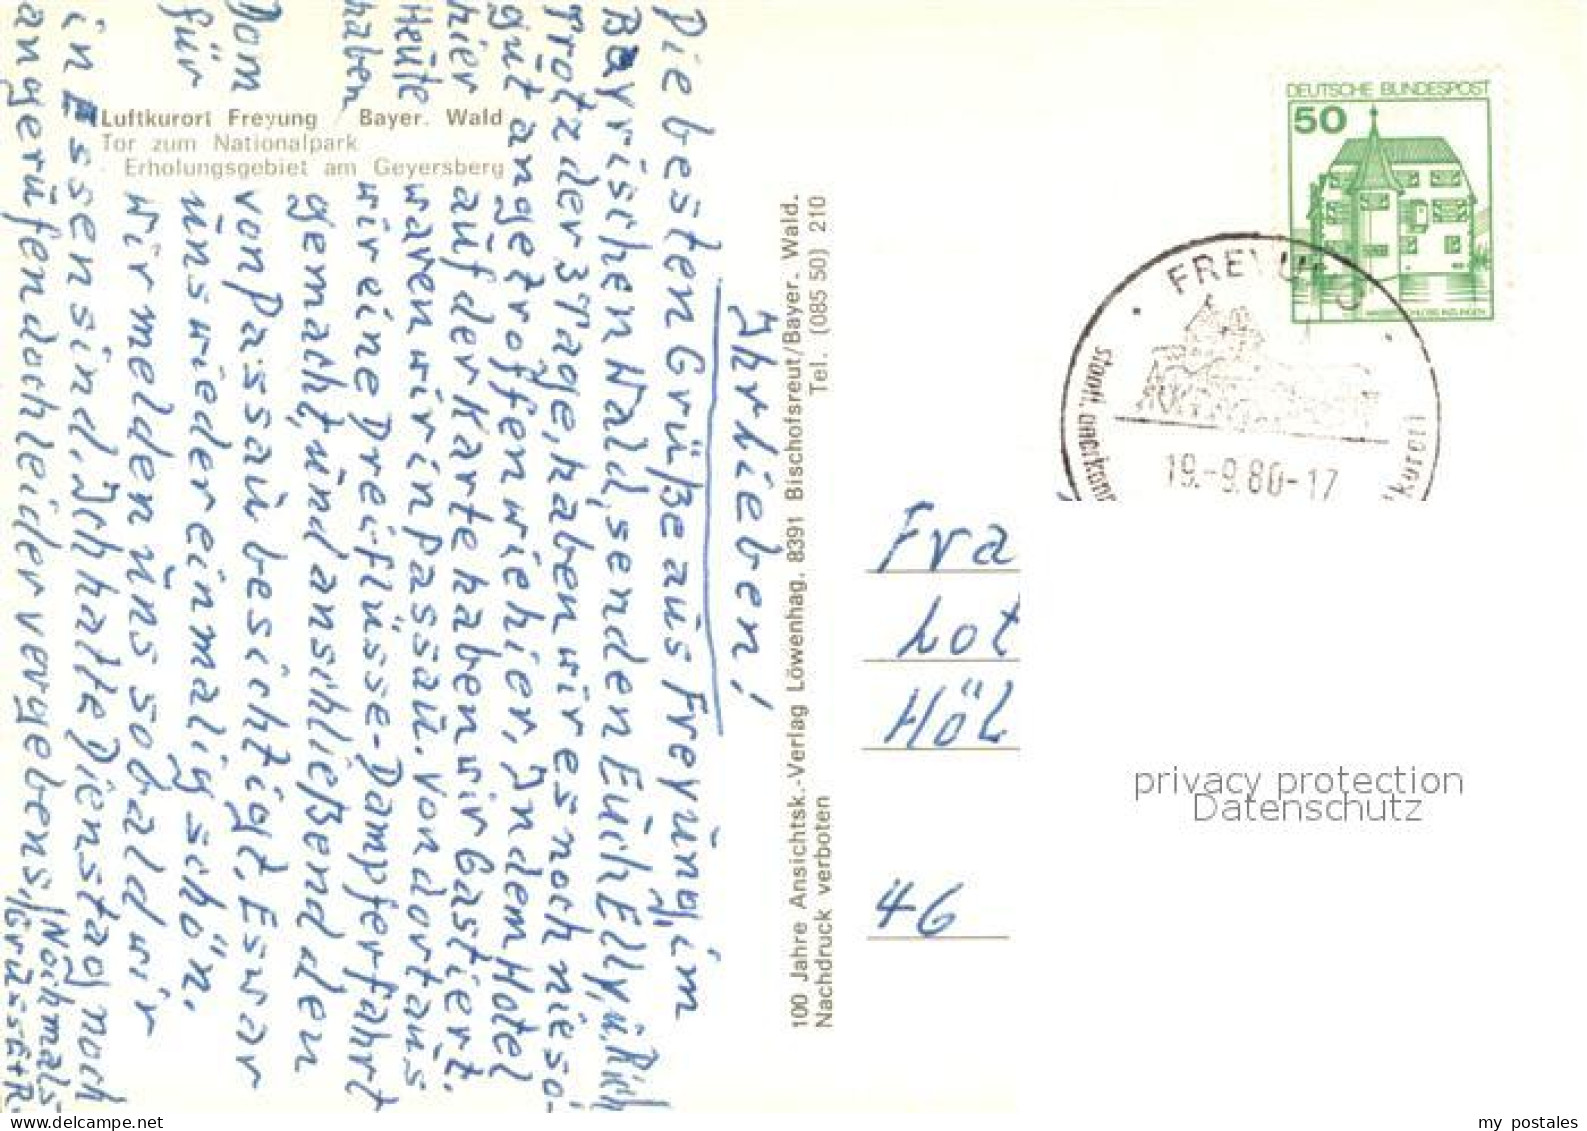 Ihr Lieben!
Die besten Grüße aus Freyung, im
Bayrischen Wald, senden Euch Elly, u. Rich
Trotz der 3 Tage, haben wir es noch nie so-
gut angetroffen wie hier, In dem Hotel
hier auf der Karte haben wir Gastiert.
Heute waren wir in Passau. Von dort aus
haben wir eine Drei-flüsse-Dampferfahrt
gemacht, und ansichließend den
Dom von Passau besichtigt, Es war
für uns wieder einmalig schön,
Wir melden uns sobald wir
in Essen sind, Ich hatte Dienstag noch
angerufen doch leider vergebens, Nochmals
Grü=sE+R.
Luftkurort Freyung / Bayer. Wald
Tor zum Nationalpark
- Erholungsgebiet am Geyersberg
100 Jahre Ansichtsk.-Verlag Löwenhag, 8391 Bischofsreut/Bayer. Wald.
Nachdruck verboten Tel. (085 50) 210
DEUTSCHE BUNDESPOST
50
WASSERSCHLOSS INZLINGEN
FREYUNG
staatl. anerkann
ftkurort
19.-9.80-17
Fra
Lot
Höl
46
privacy protection
Datenschutz
my postales